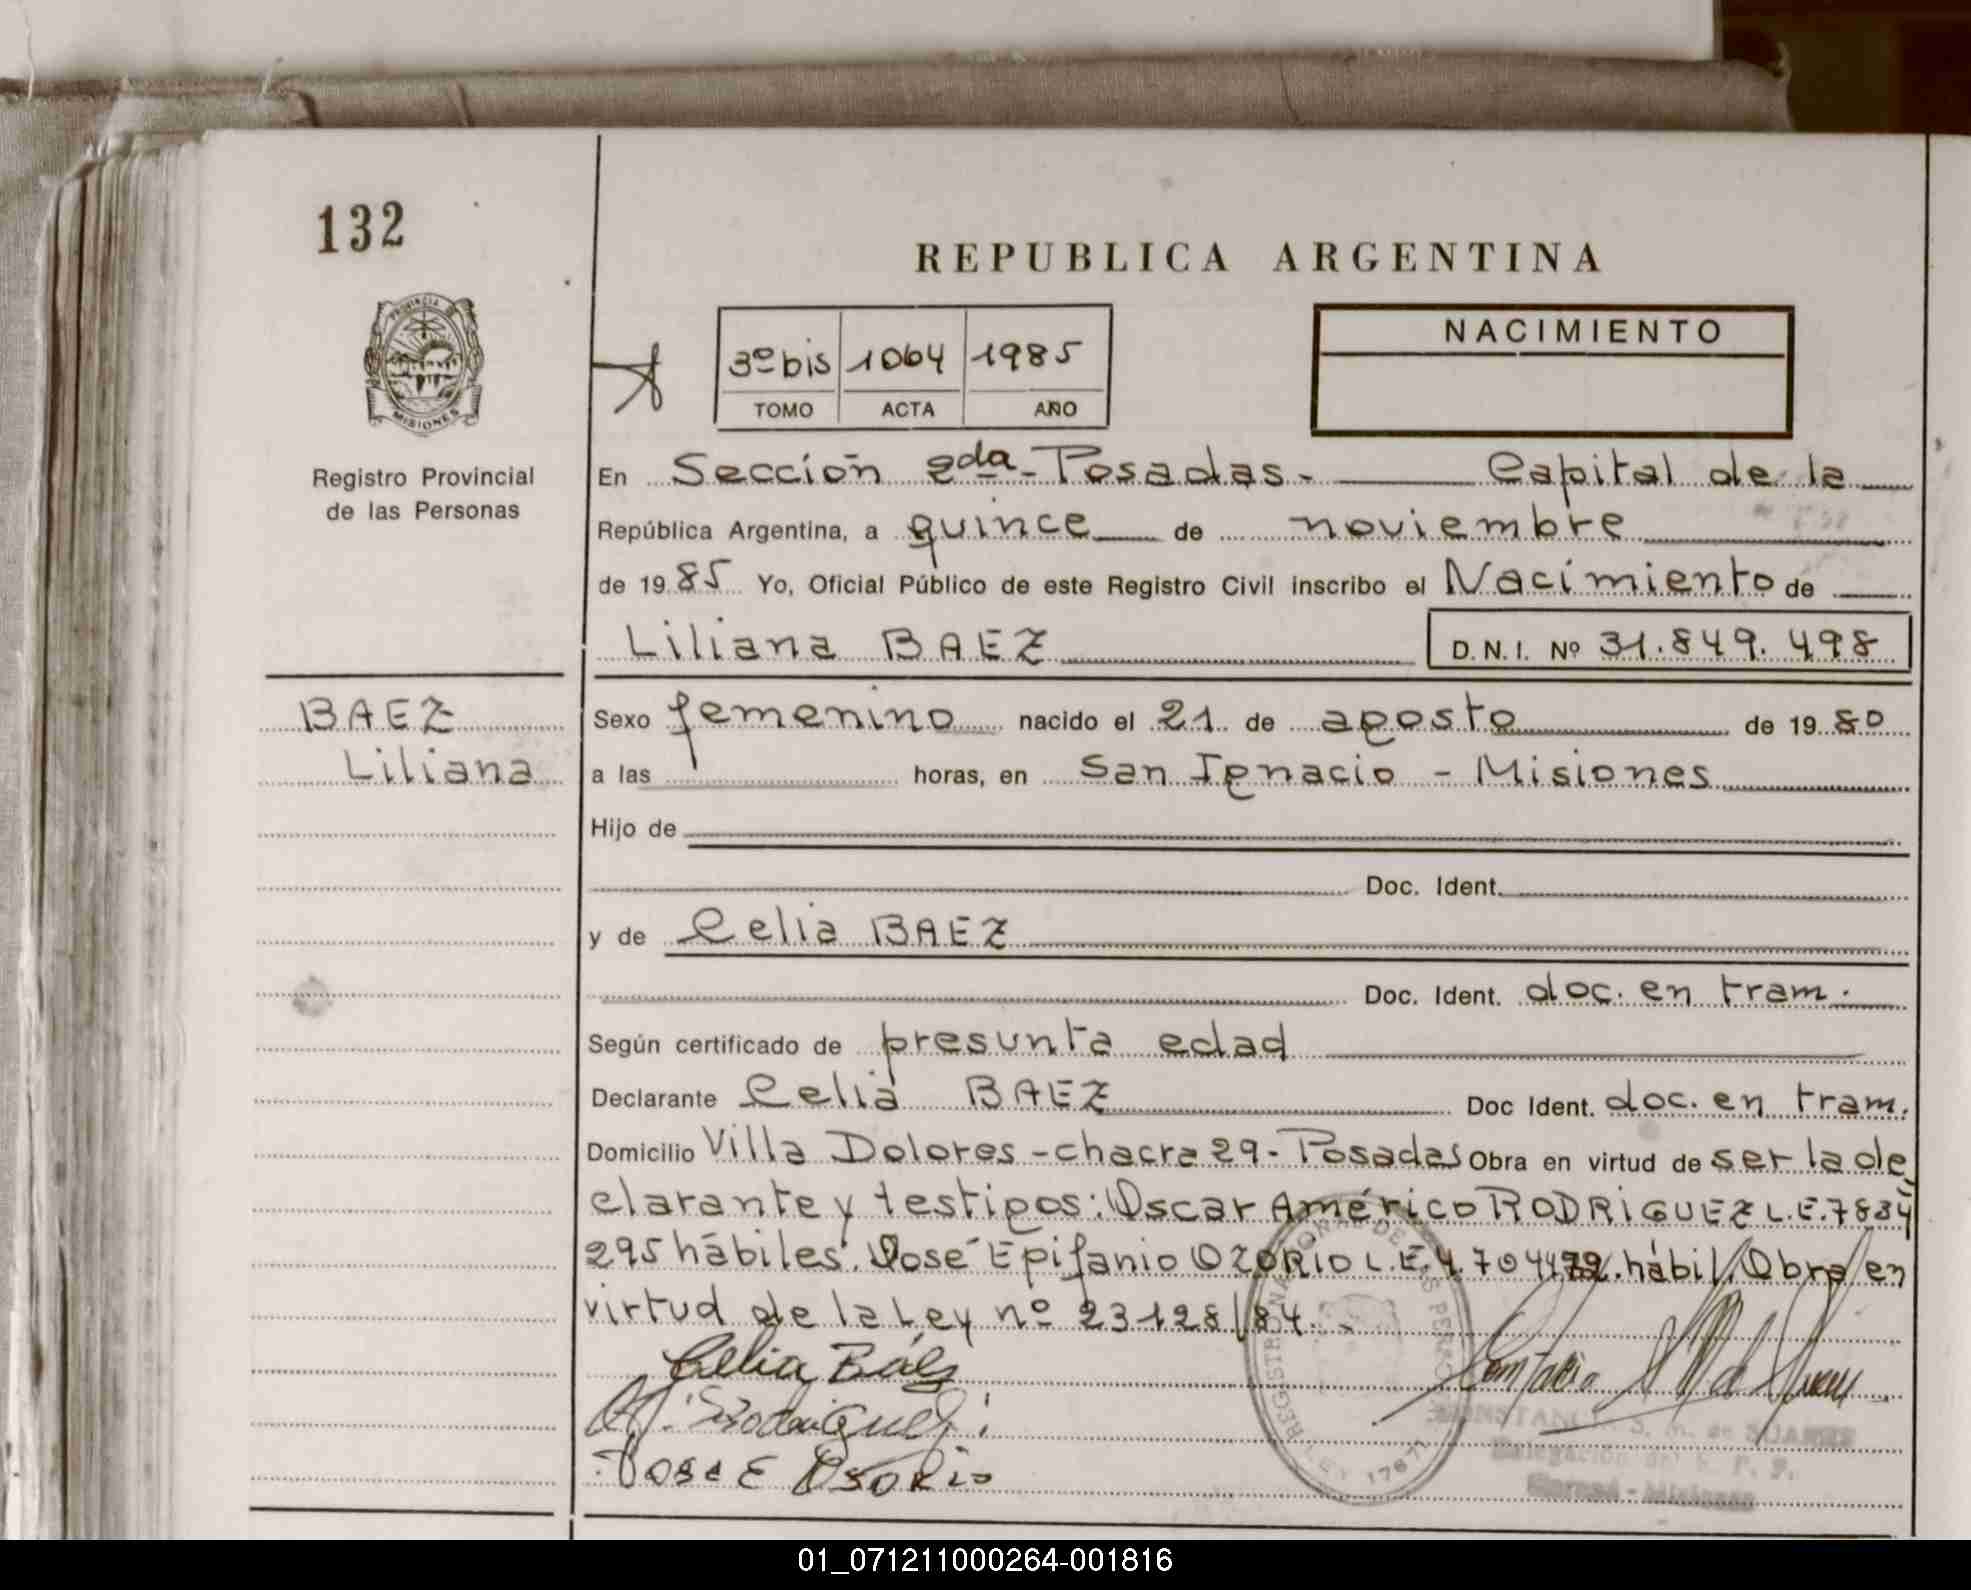 132
REPUBLICA ARGENTINA
PROVINCIA DE
MISIONES
Registro Provincial
de las Personas
3º bis 1064 1985
TOMO ACTA AÑO
NACIMIENTO
En Sección 2da - Posadas - Capital de la
República Argentina, a quince de noviembre
de 1985 Yo, Oficial Público de este Registro Civil inscribo el Nacimiento de
Liliana BAEZ D.N.I. Nº 31.849.498
BAEZ
Liliana
Sexo femenino nacido el 21 de agosto de 1980
a las horas, en San Ignacio - Misiones
Hijo de
Doc. Ident.
y de Celia BAEZ
Doc. Ident. doc. en tram.
Según certificado de presunta edad
Declarante Celia BAEZ Doc Ident. doc. en tram.
Domicilio Villa Dolores - chacra 29 - Posadas Obra en virtud de ser la de
clarante y testigos: Oscar Américo RODRIGUEZ L.E. 7834
295 hábiles. José Epifanio OZORIO L.E. 4.704.472. hábil. Obra en
virtud de la Ley nº 23128/84.
Celia Báez
A. Rodriguez
Jose E Osorio
CONSTANCIA S. M. de SUAREZ
Delegación del R. P. P.
Misiones
LEY 17671
01_071211000264-001816